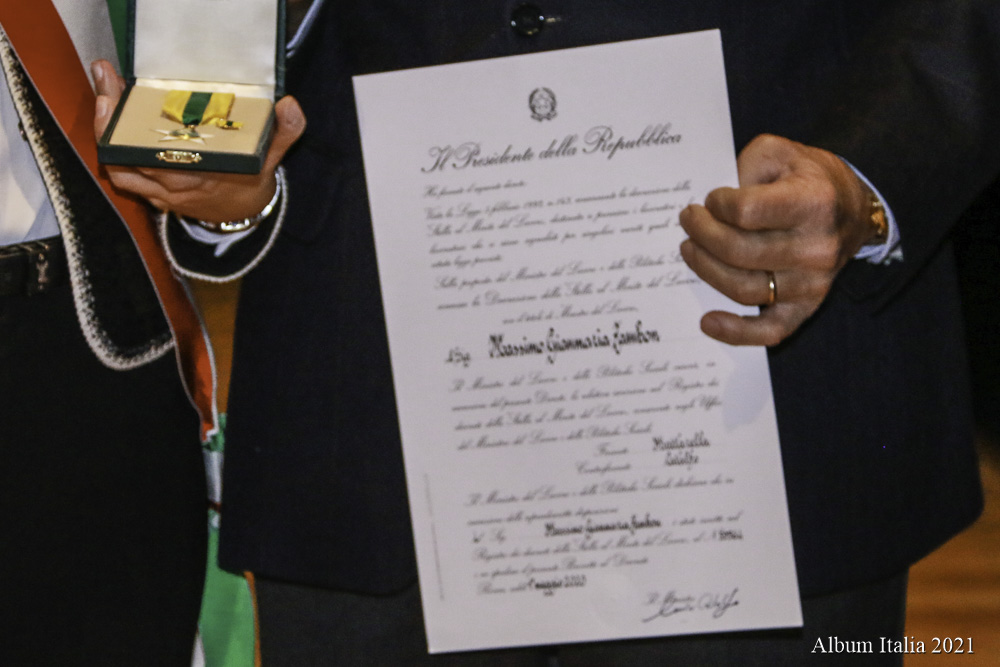 Il Presidente della Repubblica
Ha firmato il seguente decreto
Vista la Legge 5 febbraio 1992, n. 143, concernente la decorazione della
Stella al Merito del Lavoro, destinata a premiare i lavoratori e
lavoratrici che si siano segnalati per singolari meriti
citata legge prevede
Sulla proposta del Ministro del Lavoro e delle Politiche
conferisce la Decorazione della Stella al Merito del Lavoro,
con il titolo di Maestro del Lavoro,
al Sig. Massimo Gianmaria Zambon
Il Ministro del Lavoro e delle Politiche Sociali curerà, in
esecuzione del presente Decreto, la relativa iscrizione nel Registro dei
decorati della Stella al Merito del Lavoro, conservato negli Uffici
del Ministero del Lavoro e delle Politiche Sociali
Firmato Mattarella
Controfirmato Catalfo
Il Ministro del Lavoro e delle Politiche Sociali dichiara che in
esecuzione delle sopraindicate disposizioni
il Sig. Massimo Gianmaria Zambon è stato iscritto nel
Registro dei decorati della Stella al Merito del Lavoro, al N.
e ne spedisce il presente Brevetto al Decorato
Roma, addì 1 maggio
Il Ministro
Album Italia 2021